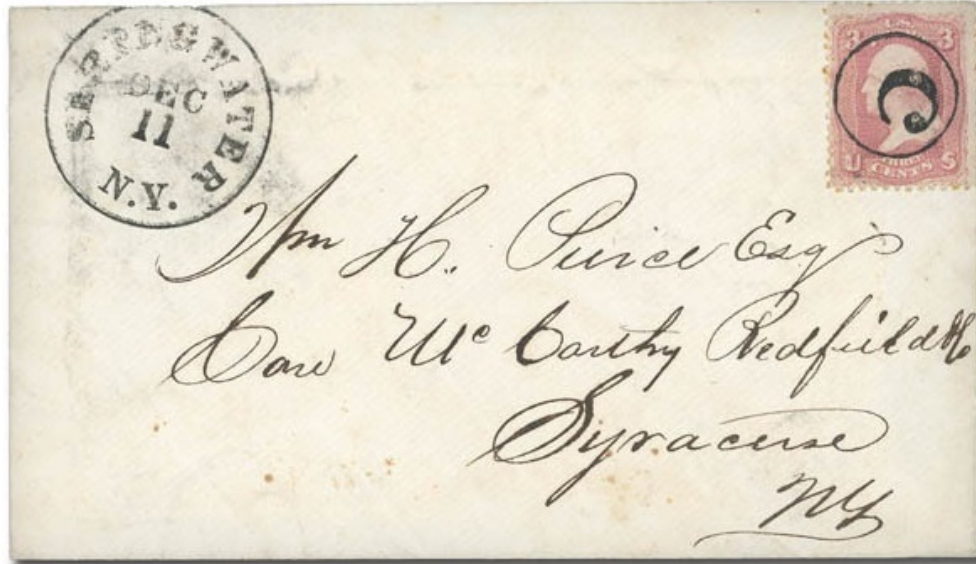 SPRINGWATER
DEC
11
N.Y.
U.S.
3 3
C
U THREE S
CENTS
Wm H. Peirce Esq
Care McCarthy Redfield & Co
Syracuse
NY